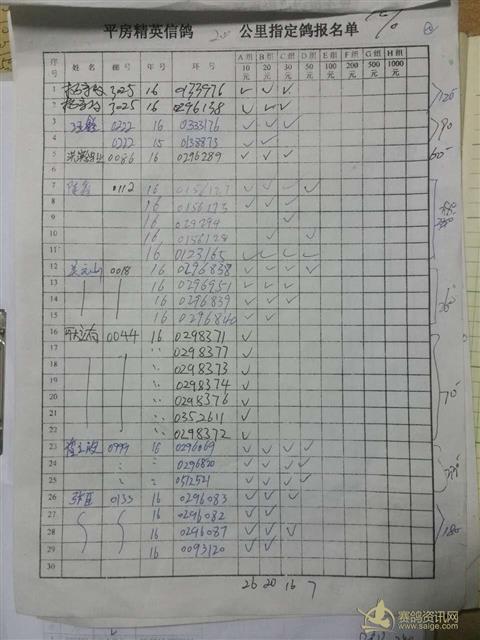 平房精英信鸽 20 公里指定鸽报名单
序号 姓名 棚号 年号 环号 A组10元 B组20元 C组30元 D组50元 E组100元 F组200元 G组500元 H组1000元
1 3025 16 0133976 ✓ ✓ ✓
2 3025 16 0296138 ✓ ✓ ✓ 120
3 0222 16 0333176 ✓ ✓ ✓
4 0222 15 0138873 ✓ ✓ 90
5 0086 16 0296289 ✓ ✓ ✓ 60
6
7 0112 16 0156127 ✓ ✓ ✓ ✓
8 16 0156173 ✓ ✓ ✓
9 16 ✓
10 16 0156128 ✓ ✓
11 16 0123165 ✓ ✓ ✓ ✓
12 吴元山 0018 16 0296838 ✓ ✓ ✓ ✓
13 16 0296951 ✓ ✓ ✓
14 16 0296839 ✓ ✓ ✓ 260
15 16 0296840 ✓ ✓
16 0044 16 0298371 ✓
17 0298377 ✓
18 0298373 ✓
19 0298374 ✓ 70
20 0298376 ✓
21 0352611 ✓
22 0298372 ✓
23 0999 16 0296069 ✓ ✓ ✓ ✓
24 0296820 ✓ ✓ ✓ ✓
25 0512521 ✓ ✓ ✓ ✓
26 0133 16 0296083 ✓ ✓ ✓
27 16 0296082 ✓ ✓
28 16 0296087 ✓ ✓ ✓ 180
29 16 0093120 ✓ ✓
30
26 20 16 7
赛鸽资讯网
www.saige.com